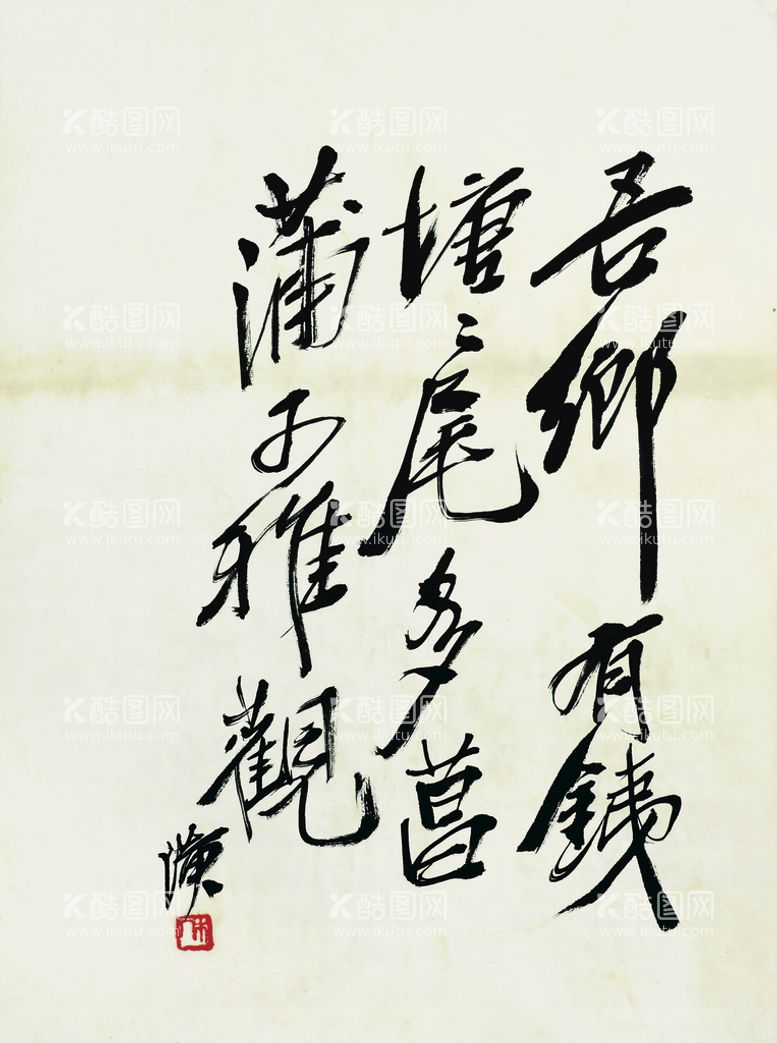 吾鄉有銕
塘〻尾多菖
蒲雅觀
璜
酷图网
www.ikutu.com